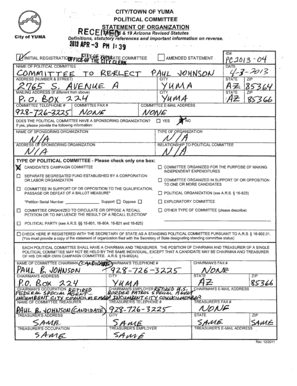 CITY/TOWN OF YUMA
POLITICAL COMMITTEE
STATEMENT OF ORGANIZATION
City of YUMA
RECEIVED & 19 Arizona Revised Statutes
Definitions, statutory references and important information on reverse.
2013 APR -3 PM 1:39
INITIAL REGISTRATION
OFFICE OF THE CITY CLERK
AMENDED STATEMENT
ID#
PC2013-04
NAME OF POLITICAL COMMITTEE
DATE
COMMITTEE TO REELECT PAUL JOHNSON
4-3-2013
ADDRESS (NUMBER & STREET) CITY STATE ZIP
2765 S. AVENUE A YUMA AZ 85364
MAILING ADDRESS (if different from above) CITY STATE ZIP
P.O. BOX 224 YUMA AZ 85366
COMMITTEE TELEPHONE # COMMITTEE FAX # COMMITTEE E-MAIL ADDRESS
928-726-3225 NONE NONE
DOES THE POLITICAL COMMITTEE HAVE A SPONSORING ORGANIZATION? YES NO
If yes, please provide the following information:
NAME OF SPONSORING ORGANIZATION TYPE OF ORGANIZATION
N/A N/A
ADDRESS OF SPONSORING ORGANIZATION RELATIONSHIP TO POLITICAL COMMITTEE
N/A N/A
TYPE OF POLITICAL COMMITTEE - Please check only one box:
X CANDIDATE'S CAMPAIGN COMMITTEE
COMMITTEE ORGANIZED FOR THE PURPOSE OF MAKING INDEPENDENT EXPENDITURES
SEPARATE SEGREGATED FUND ESTABLISHED BY A CORPORATION OR LABOR ORGANIZATION
COMMITTEE ORGANIZED IN SUPPORT OF OR OPPOSITION TO ONE OR MORE CANDIDATES
COMMITTEE IN SUPPORT OF OR OPPOSITION TO THE QUALIFICATION, PASSAGE OR DEFEAT OF A BALLOT MEASURE*
POLITICAL ORGANIZATION (see A.R.S. § 16-823)
*Petition Serial Number Support Oppose
EXPLORATORY COMMITTEE
COMMITTEE ORGANIZED TO CIRCULATE OR OPPOSE A RECALL PETITION OR TO INFLUENCE THE RESULT OF A RECALL ELECTION*
OTHER TYPE OF COMMITTEE (please describe)
POLITICAL PARTY (see A.R.S. §§ 16-801, 16-804, 16-821 and 16-825)
CHECK HERE IF REGISTERED WITH THE SECRETARY OF STATE AS A STANDING POLITICAL COMMITTEE PURSUANT TO A.R.S. § 16-902.01.
EACH POLITICAL COMMITTEE SHALL HAVE A CHAIRMAN AND TREASURER. THE POSITION OF CHAIRMAN AND TREASURER OF A SINGLE
POLITICAL COMMITTEE MAY NOT BE HELD BY THE SAME INDIVIDUAL, EXCEPT THAT A CANDIDATE MAY BE CHAIRMAN AND TREASURER
OF HIS OR HER OWN CAMPAIGN COMMITTEE. A.R.S. §
NAME OF COMMITTEE CHAIRMAN (CANDIDATE) CHAIRMAN'S TELEPHONE # CHAIRMAN'S FAX #
PAUL B. JOHNSON 928-726-3225 NONE
CHAIRMAN'S ADDRESS CITY STATE ZIP
P.O. BOX 224 YUMA AZ 85366
CHAIRMAN'S OCCUPATION RETIRED CHAIRMAN'S EMPLOYER CHAIRMAN'S E-MAIL ADDRESS
NONE
NAME OF COMMITTEE TREASURER TREASURER'S TELEPHONE # TREASURER'S FAX #
PAUL B. JOHNSON (CANDIDATE) 928-726-3225 NONE
TREASURER'S ADDRESS CITY STATE ZIP
SAME SAME SAME SAME
TREASURER'S OCCUPATION TREASURER'S EMPLOYER TREASURER'S E-MAIL ADDRESS
SAME SAME SAME